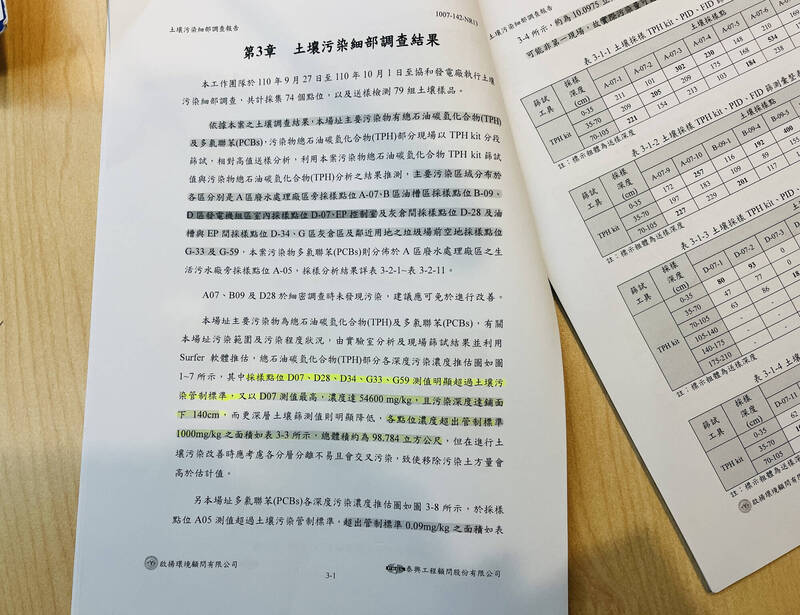 土壤污染細部調查報告
1007-142-NR13
第3章 土壤污染細部調查結果
本工作團隊於 110 年 9 月 27 日至 110 年 10 月 1 日至協和發電廠執行土壤
污染細部調查，共計採集 74 個點位，以及送樣檢測 79 組土壤樣品。
依據本案之土壤調查結果，本場址主要污染物有總石油碳氫化合物(TPH)
及多氯聯苯(PCBs)，污染物總石油碳氫化合物(TPH)部分現場以 TPH kit 分段
篩試，相對高值送樣分析，利用本案污染物總石油碳氫化合物 TPH kit 篩試
值與污染物總石油碳氫化合物(TPH)分析之結果推測，主要污染區域分布於
各區分別是 A 區廢水處理廠區旁採樣點位 A-07、B 區油槽區採樣點位 B-09、
D 區發電機組區室內採樣點位 D-07、EP 控制室及灰倉間採樣點位 D-28 及油
槽與 EP 間採樣點位 D-34、G 區灰倉區及鄰近用地之垃圾場前空地採樣點位
G-33 及 G-59，本案污染物多氯聯苯(PCBs)則分佈於 A 區廢水處理廠區之生
活污水廠旁採樣點位 A-05，採樣分析結果詳表 3-2-1~表 3-2-11。
A07、B09 及 D28 於細密調查時未發現污染，建議應可免於進行改善。
本場址主要污染物為總石油碳氫化合物(TPH)及多氯聯苯(PCBs)，有關
本場址污染範圍及污染程度狀況，由實驗室分析及現場篩試結果並利用
Surfer 軟體推估，總石油碳氫化合物(TPH)部分各深度污染濃度推估圖如圖
1~7 所示，其中採樣點位 D07、D28、D34、G33、G59 測值明顯超過土壤污
染管制標準，又以 D07 測值最高，濃度達 54600 mg/kg，且污染深度達鋪面
下 140cm，而更深層土壤篩測值則明顯降低，各點位濃度超出管制標準
1000mg/kg 之面積如表 3-3 所示，總體積約為 98.784 立方公尺，但在進行土
壤污染改善時應考慮各分層分離不易且會交叉污染，致使移除污染土方量會
高於估計值。
另本場址多氯聯苯(PCBs)各深度污染濃度推估圖如圖 3-8 所示，於採樣
點位 A05 測值超過土壤污染管制標準，超出管制標準 0.09mg/kg 之面積如表
啟揚環境顧問有限公司
3-1
泰興工程顧問股份有限公司
3-4 所示，約為 10.0975 立
可能非第一現場，故實際污染
表 3-1-1 土壤採樣 TPH kit、PID、FID 篩
篩試
工具
採樣
深度
(cm)
土壤採樣點
A-07-1 A-07-2 A-07-3 A-07-4 A-07-5 A-07-6
TPH kit
0-35 211 101 302 230 141 210
35-70 209 205 209 175 148 534
70-105 221 154 213 103 184 238
註：標示粗體為送樣深度
表 3-1-2 土壤採樣 TPH kit、PID、FID 篩測彙整
篩試
工具
採樣
深度
(cm)
土壤採樣點
A-07-9 A-07-10 B-09-1 B-09-4 B-09-5
TPH kit
0-35 172 257 116 192 400
35-70 197 183 109 89 155
70-105 227 229 201 117
註：標示粗體為送樣深度
表 3-1-3 土壤採樣 TPH kit、P
篩試
工具
採樣
深度
(cm)
D-07-1 D-07-2 D-07-3
TPH kit
0-35 80 95 0
35-70 47 43 77
70-105 63 86
105-140
140-175
175-210
註：標示粗體為送樣深度
表 3-1-4
篩試
工具
採樣
深度
(cm)
D-07-11
TPH kit
0-35
35-70
70-105
註：標示粗體為送樣深度
啟揚環境顧問有限公司